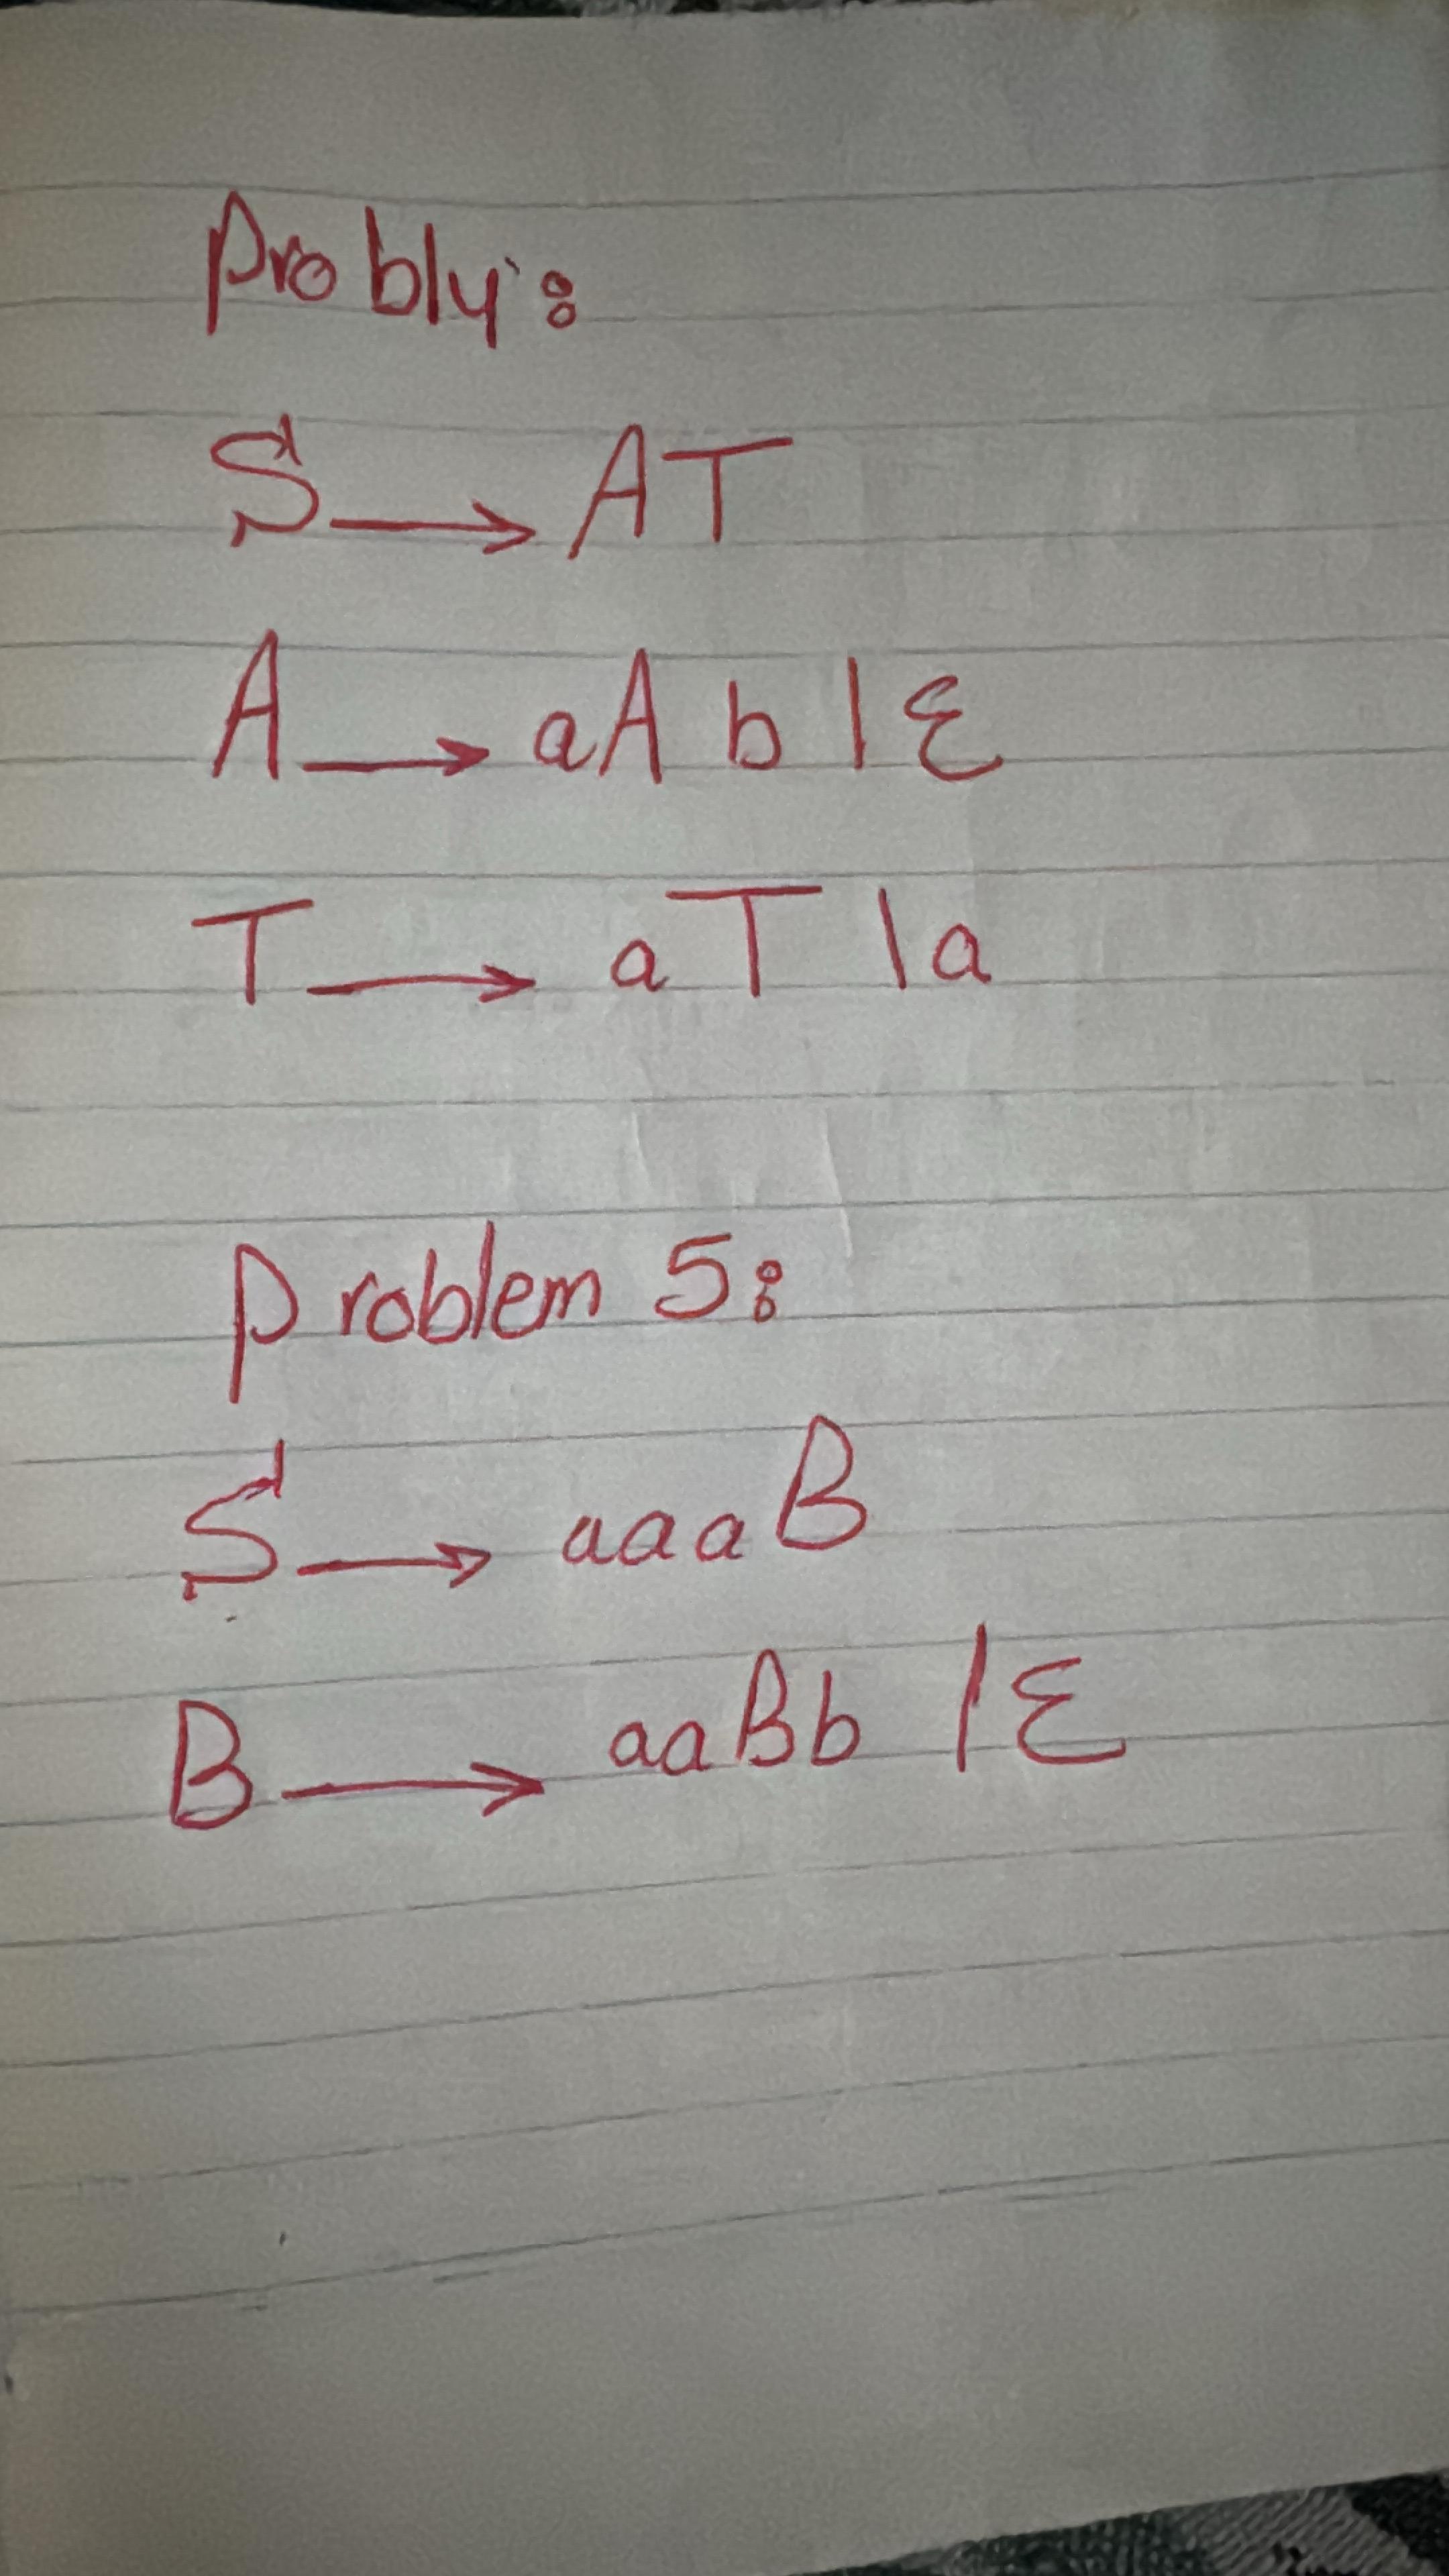 Probly:
S → AT
A → aAb | ε
T → aT | a
Problem 5:
S → aaaB
B → aaBb | ε